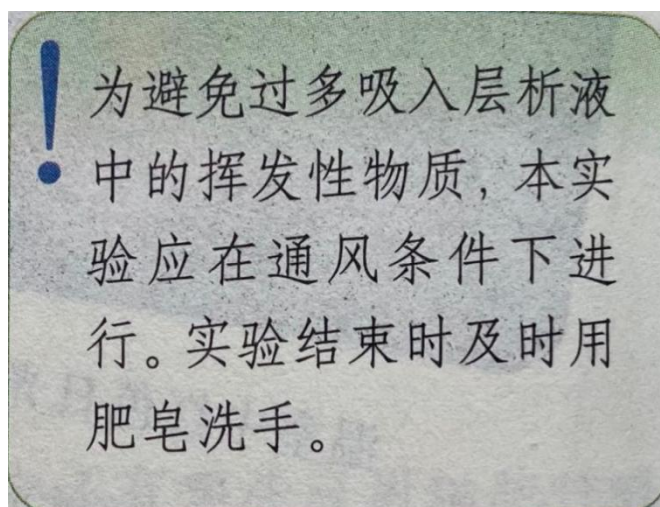 ！
为避免过多吸入层析液
中的挥发性物质，本实
验应在通风条件下进
行。实验结束时及时用
肥皂洗手。